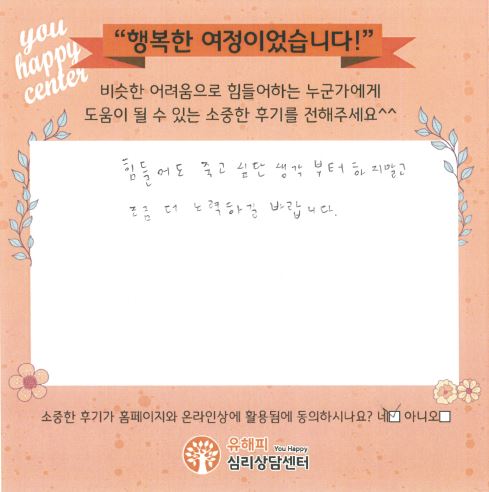 you
happy
center
“행복한 여정이었습니다!”
비슷한 어려움으로 힘들어하는 누군가에게
도움이 될 수 있는 소중한 후기를 전해주세요^^
힘들어도 죽고 싶단 생각 부터 하지말고
조금 더 노력하길 바랍니다.
소중한 후기가 홈페이지와 온라인상에 활용됨에 동의하시나요? 네☑ 아니오☐
유해피 You Happy
심리상담센터